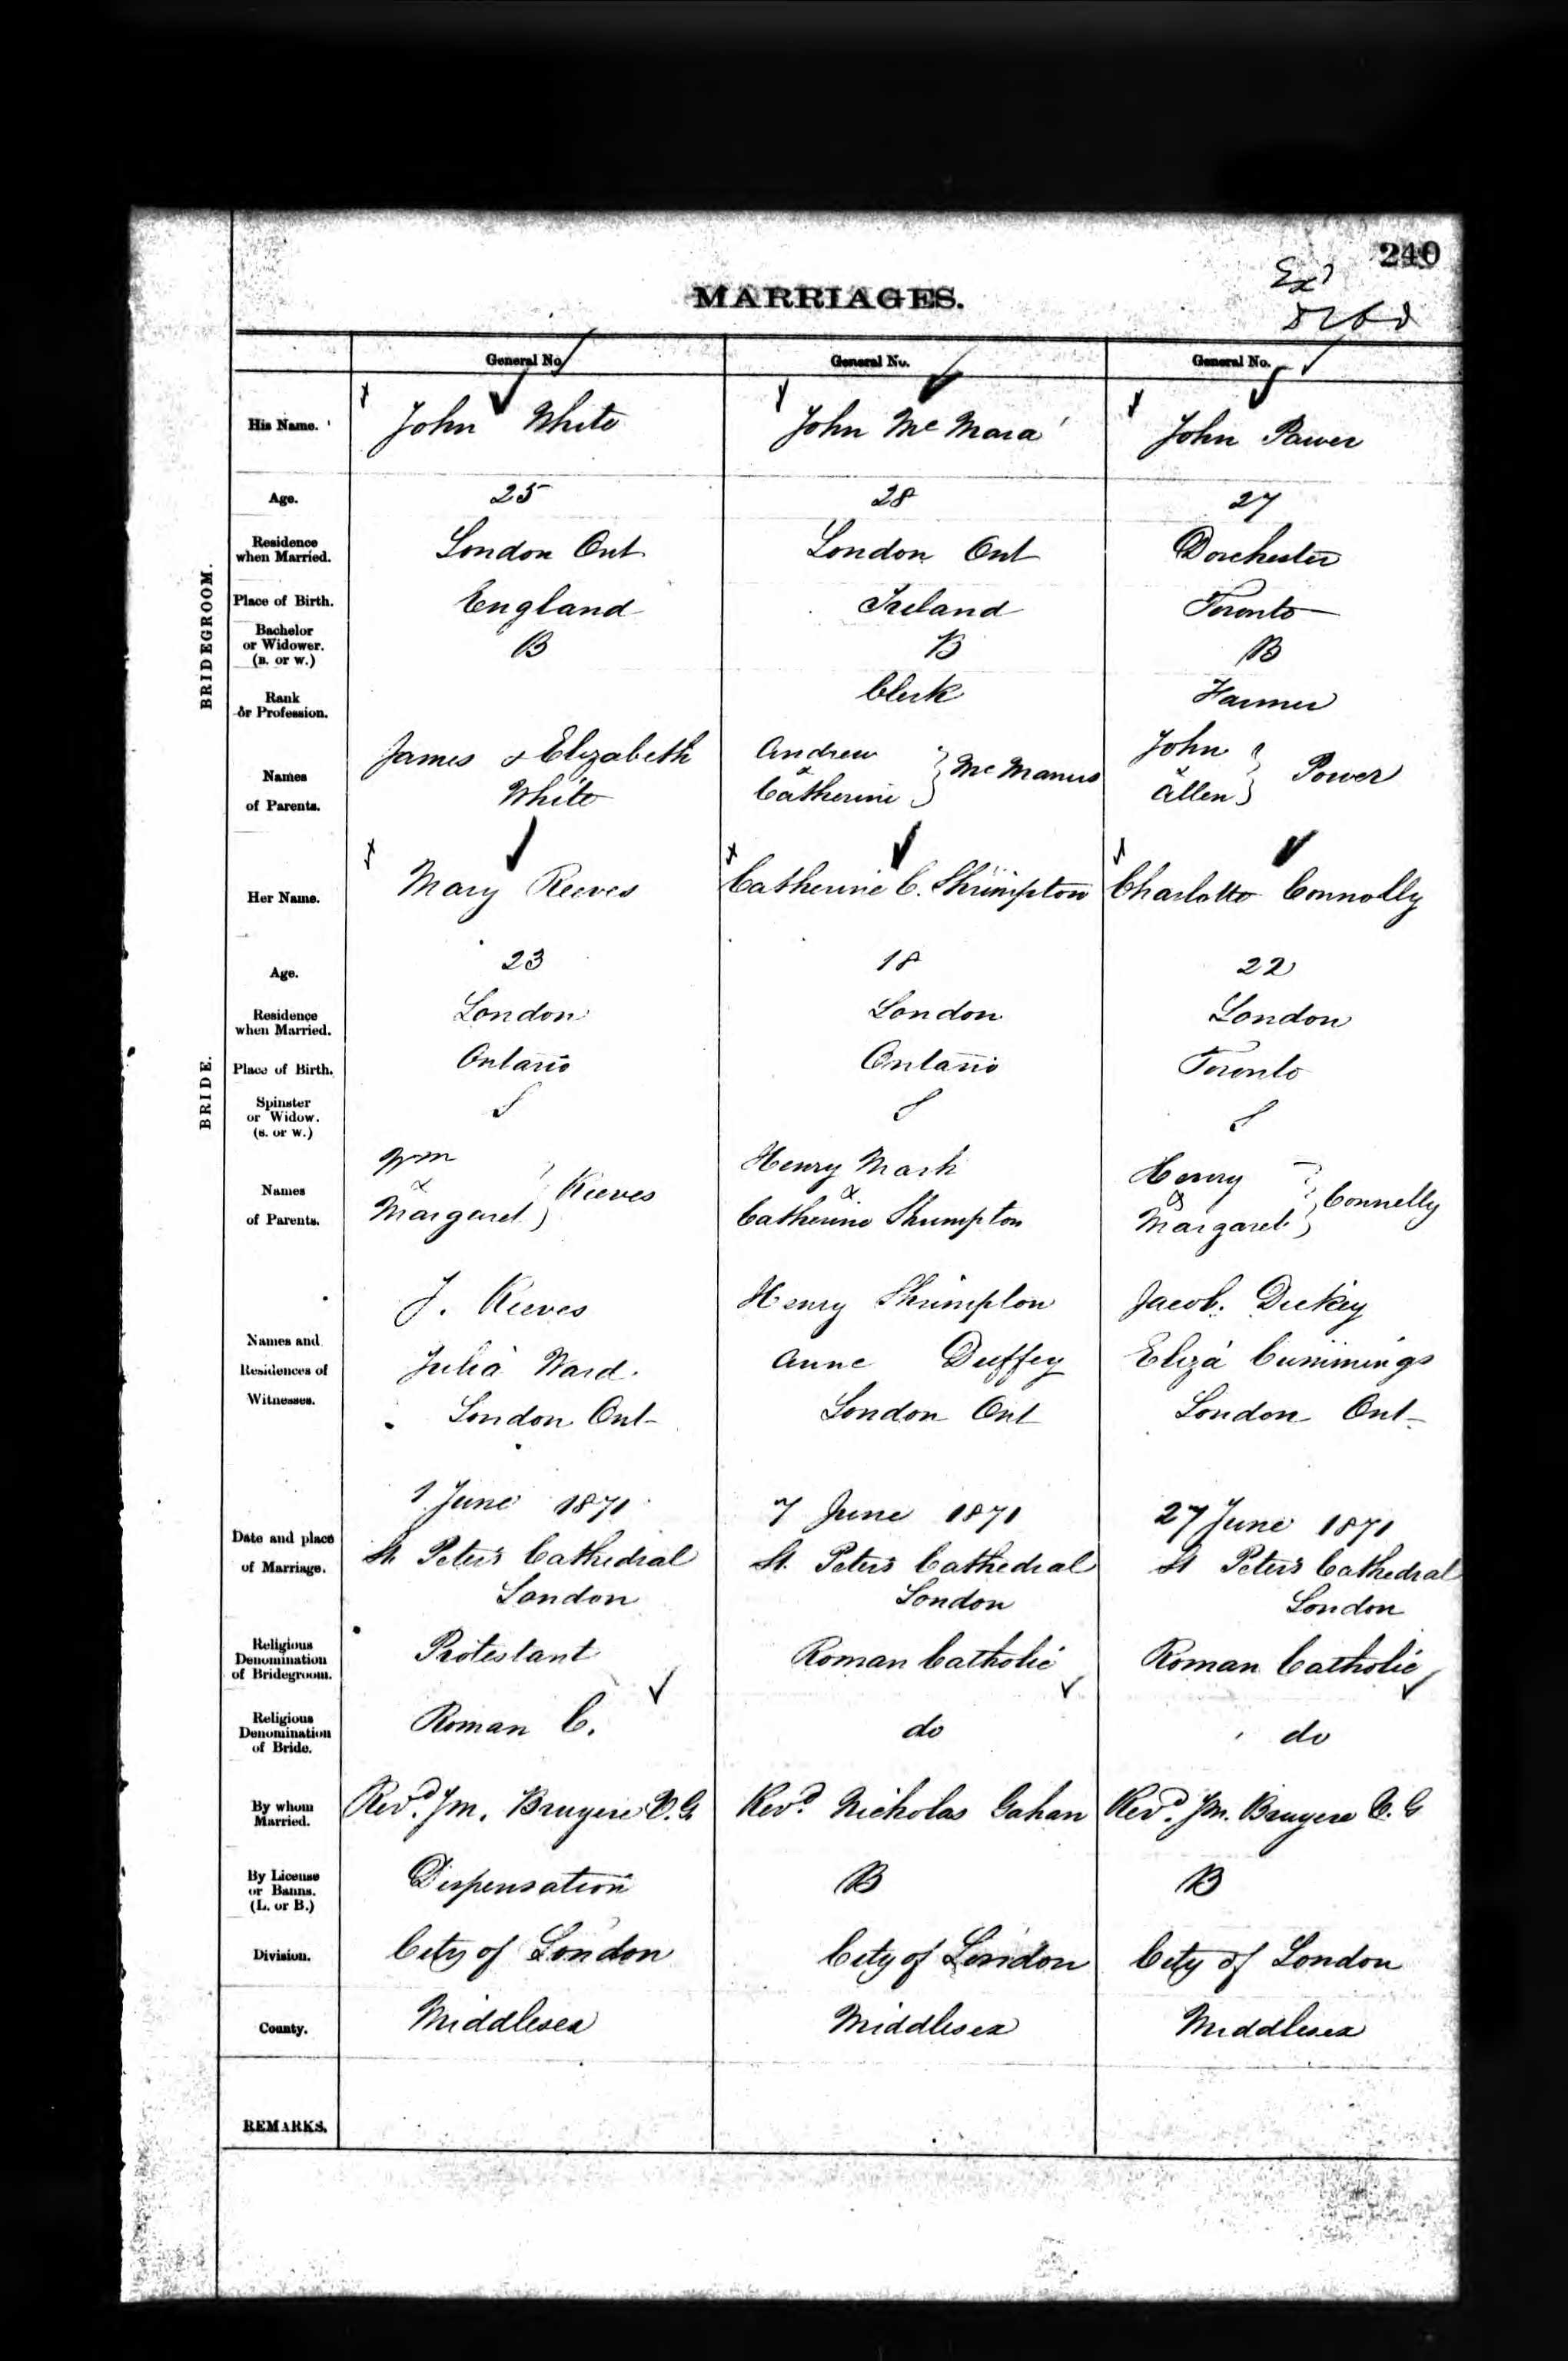 240
MARRIAGES.
General No. General No. General No.
BRIDEGROOM.
His Name. John White John McMara John Power
Age. 25 28 27
Residence when Married. London Ont London Ont Dorchester
Place of Birth. England Ireland Toronto
Bachelor or Widower. (B. or W.) B B B
Rank or Profession. Clerk Farmer
Names of Parents.
James & Elizabeth White
Andrew & Catherine } McManus
John & Ellen } Power
BRIDE.
Her Name. Mary Reeves Catherine C. Shrimpton Charlotte Connolly
Age. 23 18 22
Residence when Married. London London London
Place of Birth. Ontario Ontario Toronto
Spinster or Widow. (S. or W.) S S S
Names of Parents.
Wm & Margaret } Reeves
Henry Mark & Catherine Shrimpton
Henry & Margaret } Connelly
Names and Residences of Witnesses.
J. Reeves Henry Shrimpton Jacob. Dickey
Julia Ward. Anne Duffey Eliza Cummings
London Ont London Ont London Ont
Date and place of Marriage.
1 June 1871 7 June 1871 27 June 1871
St Peter's Cathedral St. Peter's Cathedral St Peter's Cathedral
London London London
Religious Denomination of Bridegroom. Protestant Roman Catholic Roman Catholic
Religious Denomination of Bride. Roman C. do do
By whom Married. Revd. J.M. Bruyere V.G. Revd. Nicholas Gahan Revd. J.M. Bruyere V.G
By License or Banns. (L. or B.) Dispensation B B
Division. City of London City of London City of London
County. Middlesex Middlesex Middlesex
REMARKS.